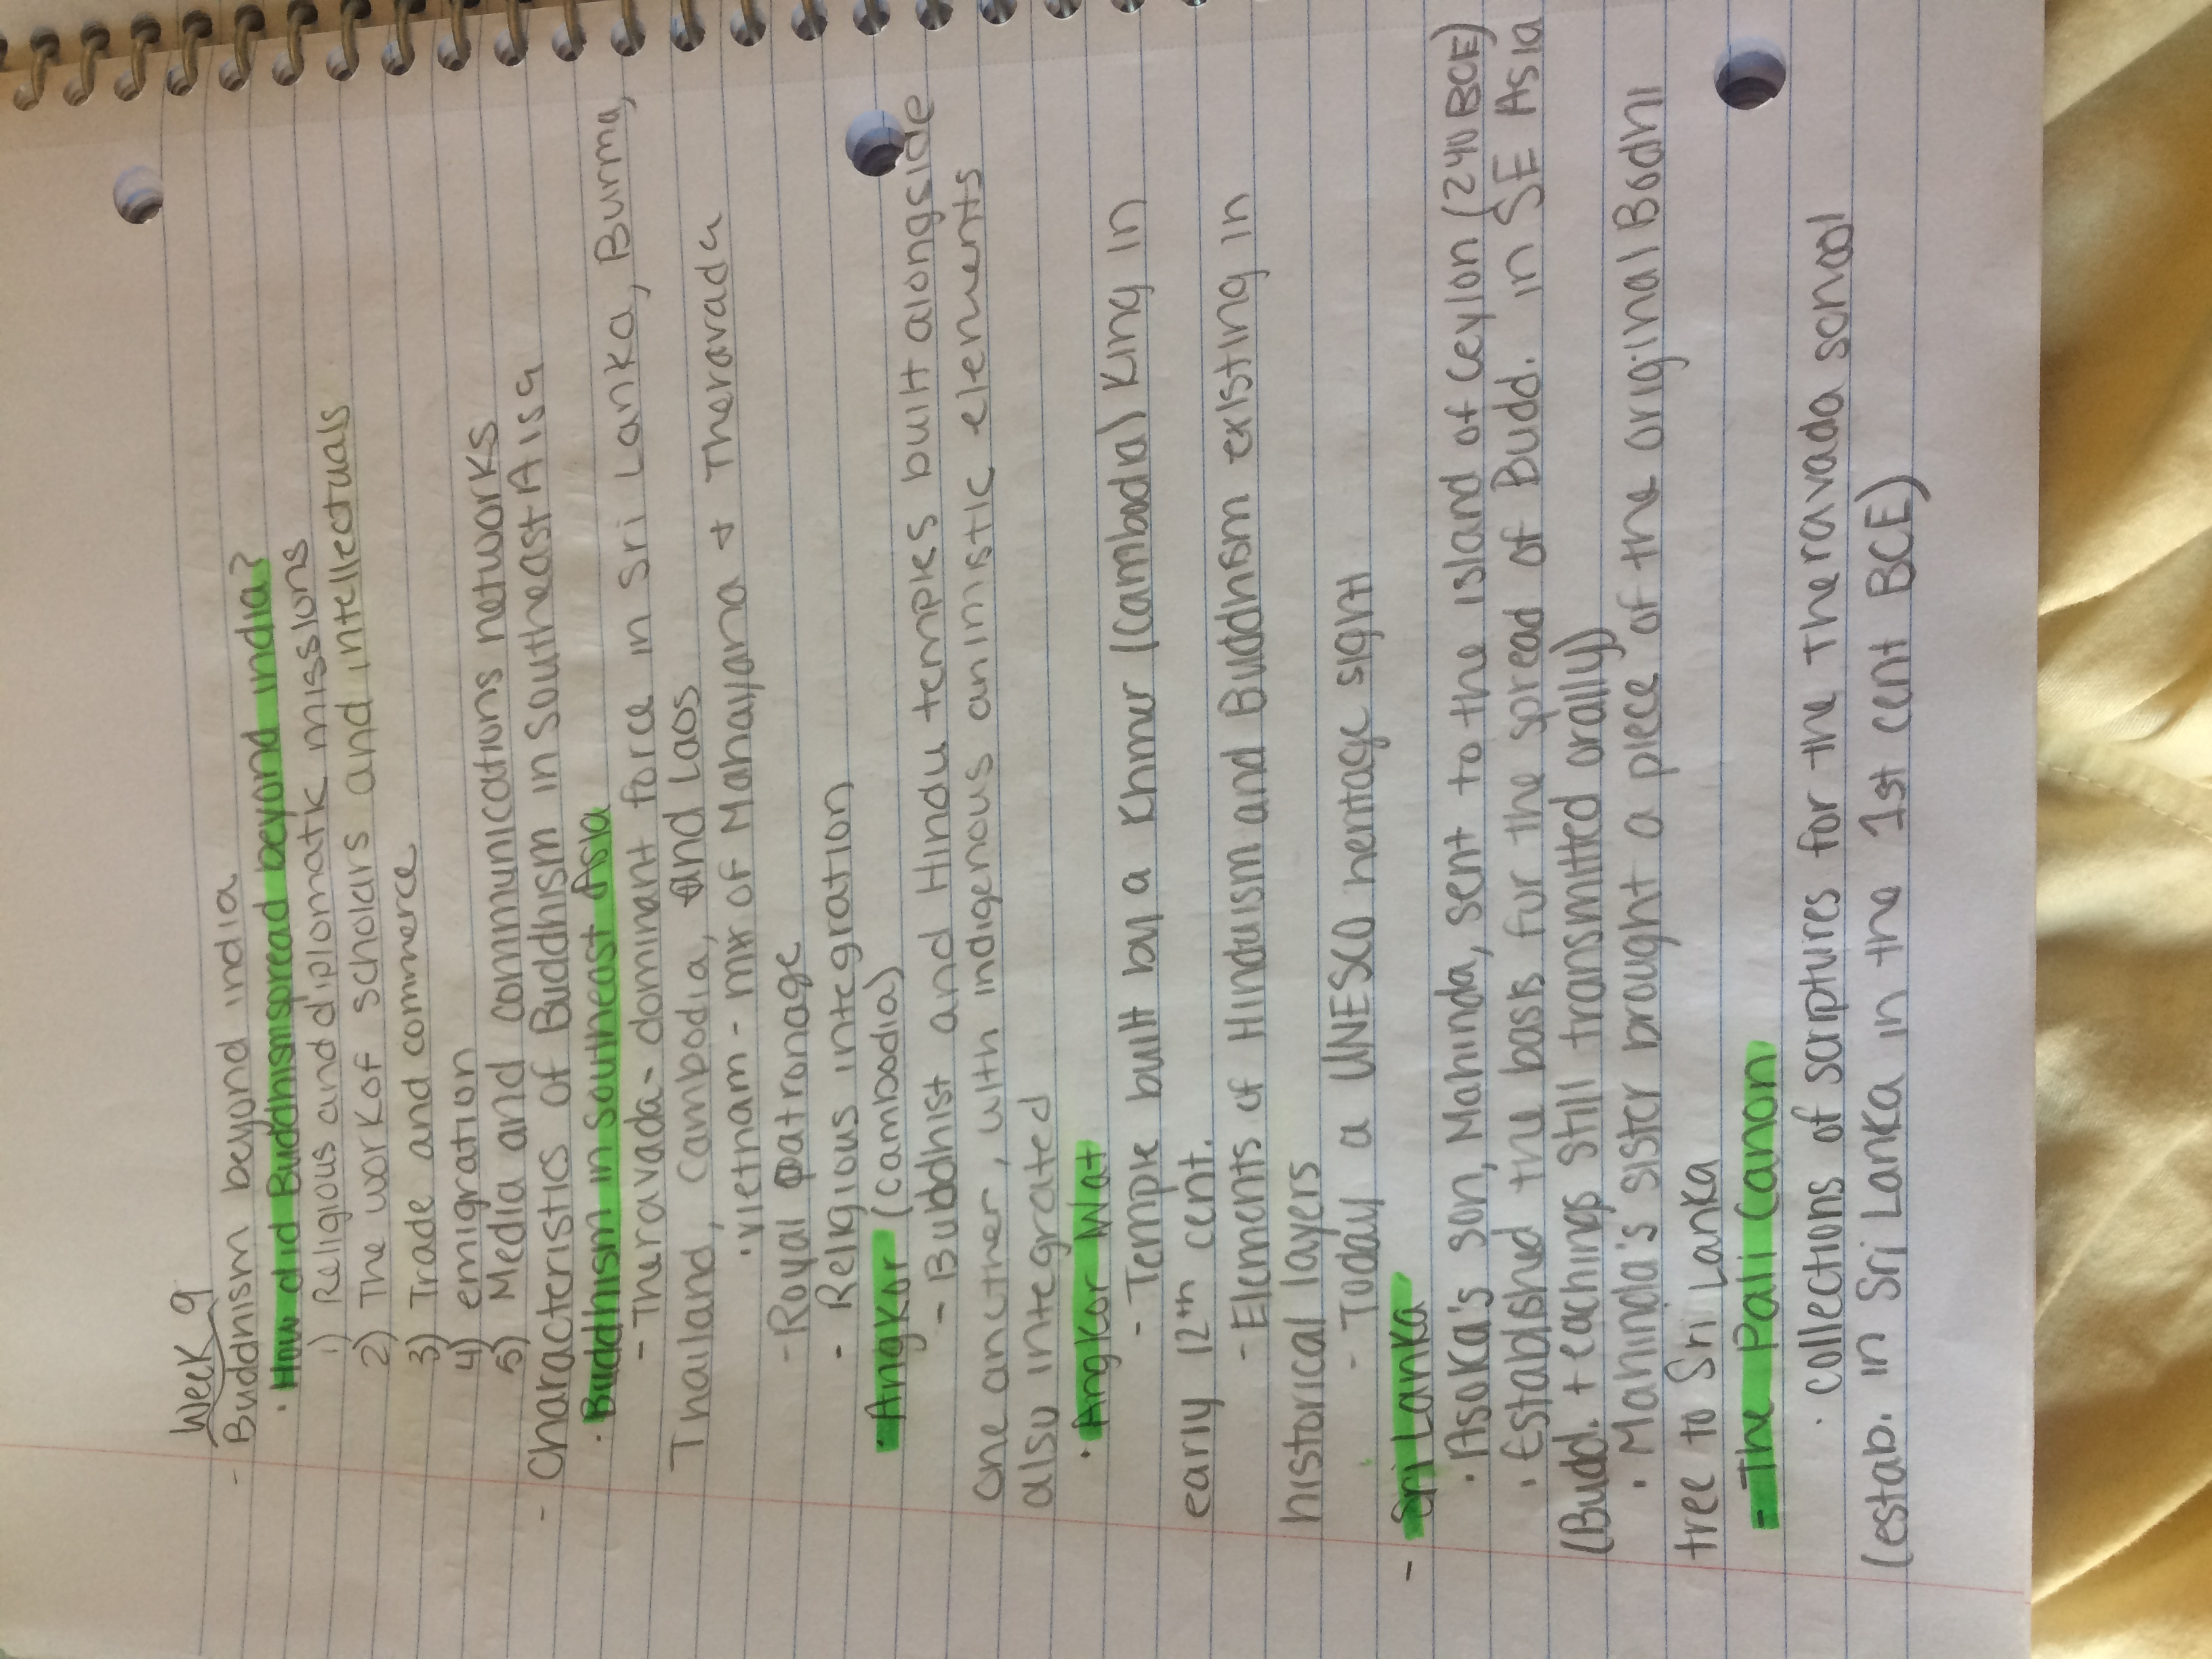 Week 9
- Buddhism beyond india
· How did Buddhism spread beyond india?
1) Religious and diplomatic missions
2) The work of scholars and intellectuals
3) Trade and commerce
4) emigration
5) Media and communications networks
- Characteristics of Buddhism in Southeast Aisa
· Buddhism in southeast Asia
- Theravada- dominant force in Sri Lanka, Burma,
Thailand, Cambodia, and Laos
· vietnam - mix of Mahayana + Theravada
- Royal patronage
- Religious integration
· Angkor (Cambodia)
- Buddhist and Hindu temples built alongside
one another, with indigenous animistic elements
also integrated
· Angkor Wat
- Temple built by a Khmer (Cambodia) King in
early 12th cent.
- Elements of Hinduism and Buddhism existing in
historical layers
- Today a UNESCO heritage sight
- Sri Lanka
· Asoka's son, Mahinda, sent to the island of Ceylon (240 BCE)
· Established the basis for the spread of Budd. in SE Asia
(Budd. teachings still transmitted orally)
· Mahinda's sister brought a piece of the original Bodhi
tree to Sri Lanka
- The Pali Canon
· collections of scriptures for the Theravada school
(estab. in Sri Lanka in the 1st cent BCE)